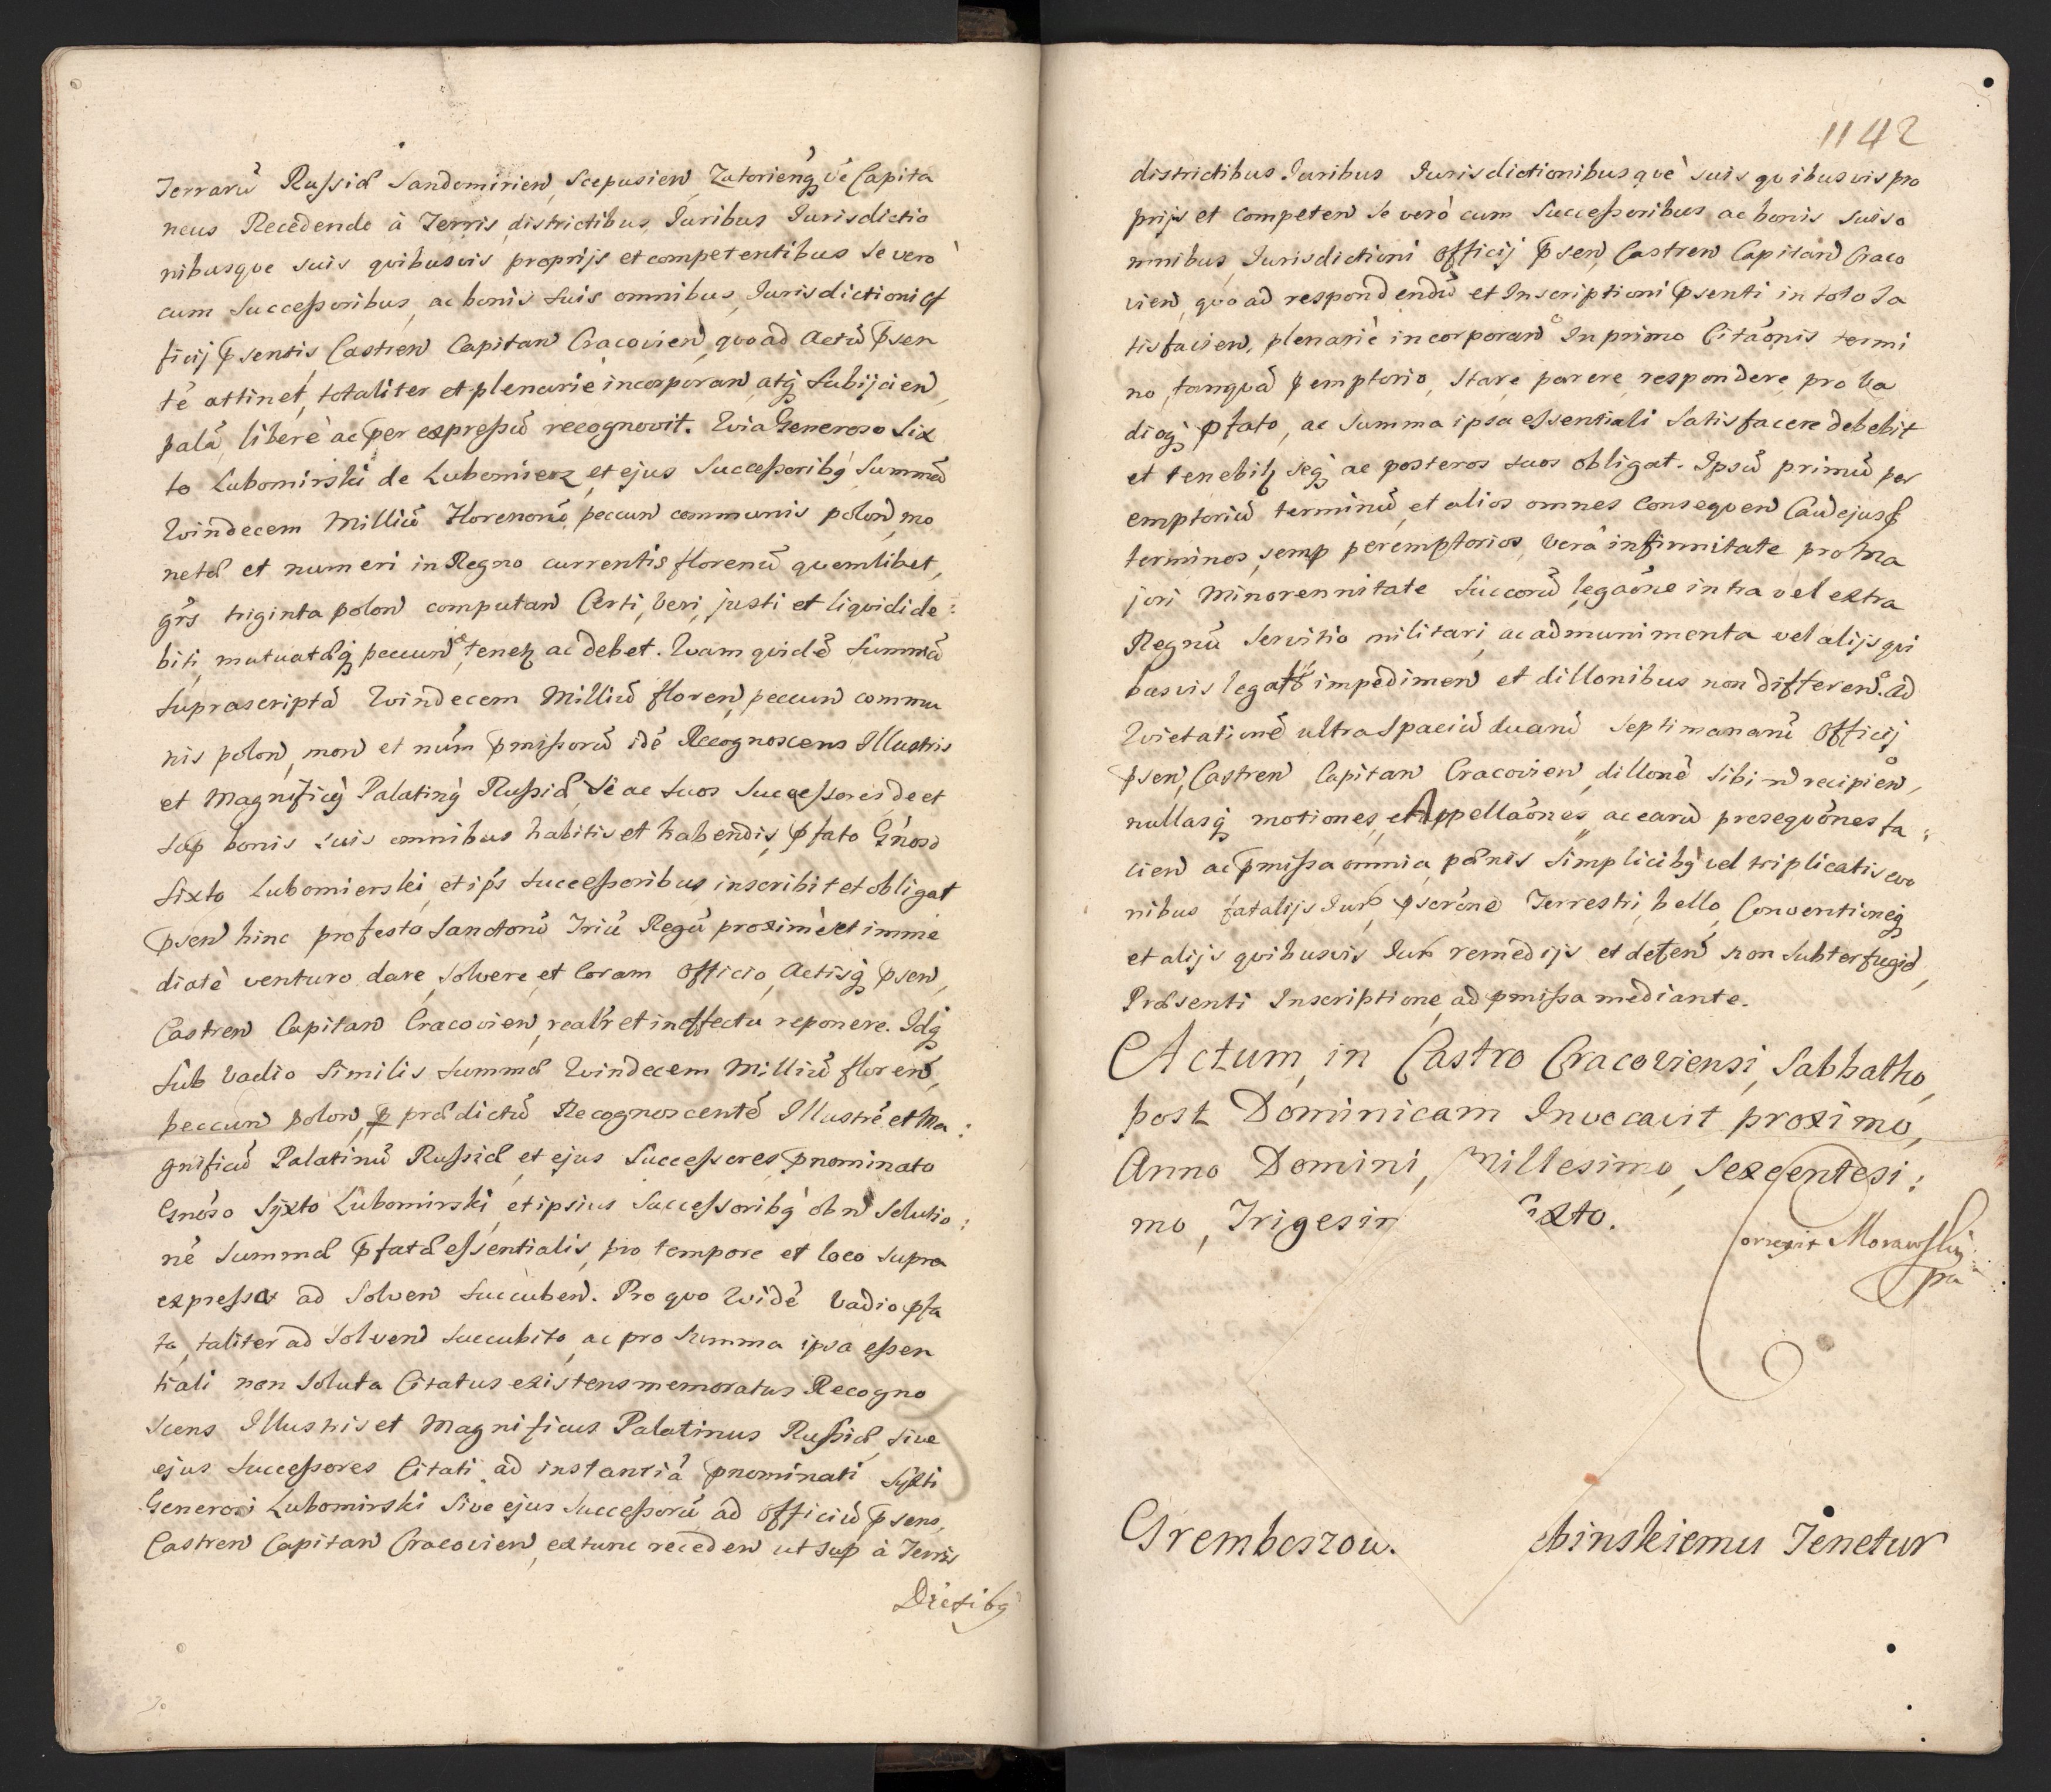 Terrarū Russiæ Sandomirien, Scepusien, Zatorienq̃ vè Capita
neus Recedendo à Terris, districtibus, Iuribus Iurisdictio
nibusque suis quibusvis proprijs et competentibus Se verò
cum Successoribus, ac bonis suis omnibus, Jurisdictioni of
ficij p̄sentis, Castren Capitan Cracovien, quo ad Actū p̄sen
tē attinet, totaliter et plenarie incorporan, atq̃ Subijcien,
palā, liberè ac per expressū recognovit. Quia Generoso Six
to Lubomirski de Lubomierz, et ejus Successorib9 Summā
Quindecem Milliū Florenorū, peccun communis polon, mo
netæ et numeri in Regno currentis florenū quemlibet,
grs triginta polon computan Certi, veri, justi et liquidi de:
biti, mutuatæq̃ peccun, tenet ac debet. Quam quidē Summā
Suprascriptā Quindecem Milliū floren, peccun commu
nis polon, mon et num p̄missorū idē Recognoscens Illustris
et Magnific9 Palatin9 Russiæ, Se ac Suos Successores de et
sup bonis suis omnibus habitis et habendis, p̄fato Gnōso
Sixto Lubomierski, et ips Successoribus, inscribit et obligat
p̄sen hinc profesto Sanctorū Triū Regū proximè et imme
diatè venturo dare, Solvere, et Coram Officio, Actisq̃ p̄sen,
Castren Capitan Cracovien, realr et in effectu reponere. Idq̃
Sub Vadio Similis Summæ Quindecem Milliū floren,
peccun polon, p prædictū Recognoscentē Illustrē et Ma:
gnificū Palatinū Russiæ, et ejus Successores, p̄nominato
Gnōso Syxto Lubomirski, et ipsius Successorib9 ob n Solutio:
nē Summæ p̄fatæ essentialis, pro tempore et loco Supra
expresso ad Solven Succuben. Pro quo Quidē Vadio p̄fa
to, taliter ad Solven Succubito, ac pro Summa ipsa essen
tiali non Soluta Citatus existens memoratus Recogno
scens Illustris et Magnificus Palatinus Russiæ, Sive
ejus Successores Citati, ad instantiā p̄nominati Syxti
Generosi Lubomirski Sive ejus Successorū ad Officiū p̄sens,
Castren Capitan Cracovien, ex tunc receden, ut sup à Terris
Distib9
1142
districtibus Iuribus Iurisdictionibus què suis quibusvis pro
prijs et competen Se verò cum Successoribus ac bonis Suis o
mnibus, Iurisdictioni Officij p̄sen, Castren Capitan Craco
vien, quo ad respondendū et Inscriptioni p̄senti in toto Sa
tisfacien, plenariè incorporan In primo Citāonis termi
no, tanquā p emptorio, Stare, parere, respondere, pro Va
dioq̃ p̄fato, ac Summa ipsa essentiali Satisfacere debebit
et tenebit, seq̃ ac posteros suos obligat. Ipsū primū per
emptoriū terminū, et alios omnes Consequen Caū ejusd
terminos, semp peremptorios, Verā infirmitate pro Ma
jori Minorennitate Succorū, legaōne intra vel extra
Regnū Servitio militari, ac ad munimenta vel alijs qui
busvis legatis impedimen et dillonibus non differen. Ad
Quietationē ultra Spaciū duarū Septimanarū Officij
p̄sen, Castren Capitan Cracovien, dillonē Sibi n recipien,
nullasq̃ motiones, et Appellaōnes, ac earū prosequōnes fa:
cien ac p̄missa omnia, pænis Simplicib9 vel triplicatis evo
nibus fatalijs Iur, p̄scrōne Terrestri, bello, Conventioneq̃
et alijs quibusvis Iur remedijs et defen non Subterfugiē,
Præsenti Inscriptione, ad p̄missa mediante.
Actum, in Castro Cracoviensi, Sabbatho,
post Dominicam Invocavit proximo,
Anno Domini, Millesimo, Sexcentesi:
mo, Trigesim xto.
orrexit Morawski
Gremboszow. binskiemu Tenetur